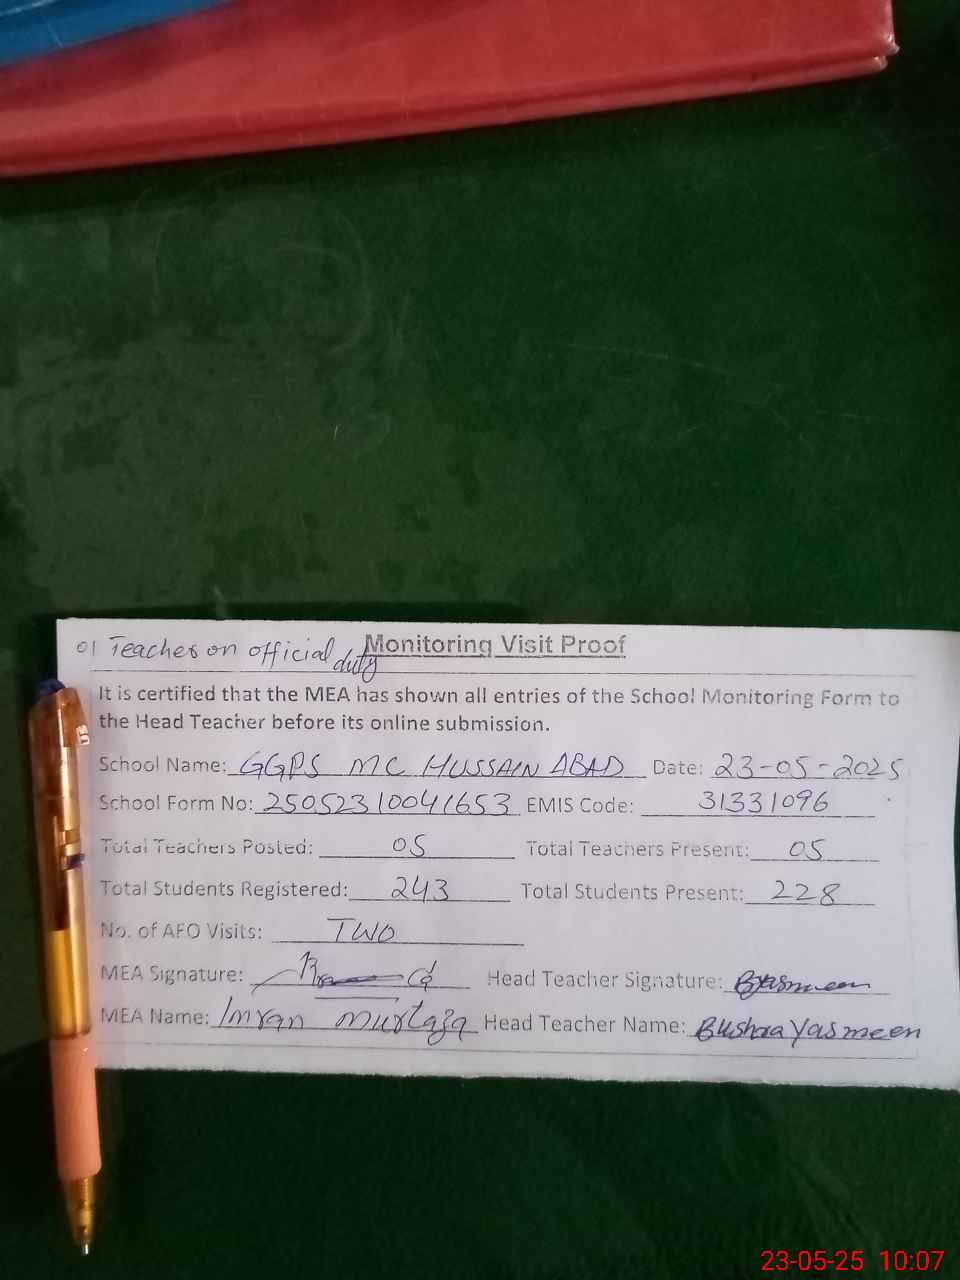 01 Teacher on official duty
Monitoring Visit Proof
It is certified that the MEA has shown all entries of the School Monitoring Form to
the Head Teacher before its online submission.
School Name: GGPS MC HUSSAIN ABAD Date: 23-05-2025
School Form No: 25052310041653 EMIS Code: 31331096
Total Teachers Posted: 05 Total Teachers Present: 05
Total Students Registered: 243 Total Students Present: 228
No. of AFO Visits: TWO
MEA Signature: Head Teacher Signature: Byasmeen
MEA Name: Imran Murtaza Head Teacher Name: Bushra Yasmeen
23-05-25 10:07